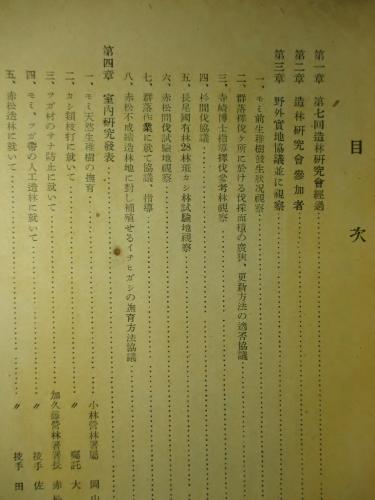 目次
第一章 第七回造林研究會經過
第二章 造林研究會參加者
第三章 野外實地協議並に視察
一、モミ前生稚樹發生狀況視察
二、群落擇伐ヶ所に於ける伐採面積の廣狹、更新方法の適否協議
三、寺崎博士指導擇伐參考林視察
四、杉間伐協議
五、長尾國有林28林班カシ林試驗地視察
六、赤松間伐試驗地視察
七、群落作業に就て協議、指導
八、赤松不成績造林地に對し補植せるイチヒガシの撫育方法協議
第四章 室內研究發表
一、モミ天然生稚樹の撫育 小林營林署屬 岡山
二、カシ類枝打に就いて 〃 囑託 大
三、ツガ材のサナ防止に就いて 加久藤營林署署長 赤松
四、モミ、ツガ帶の人工造林に就いて 〃 技手 佐
五、赤松造林に就いて 〃 技手 田